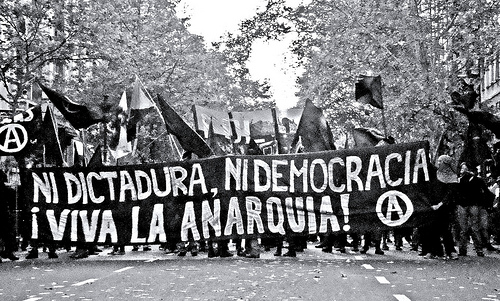 NI DICTADURA, NI DEMOCRACIA
¡VIVA LA ANARQUIA!